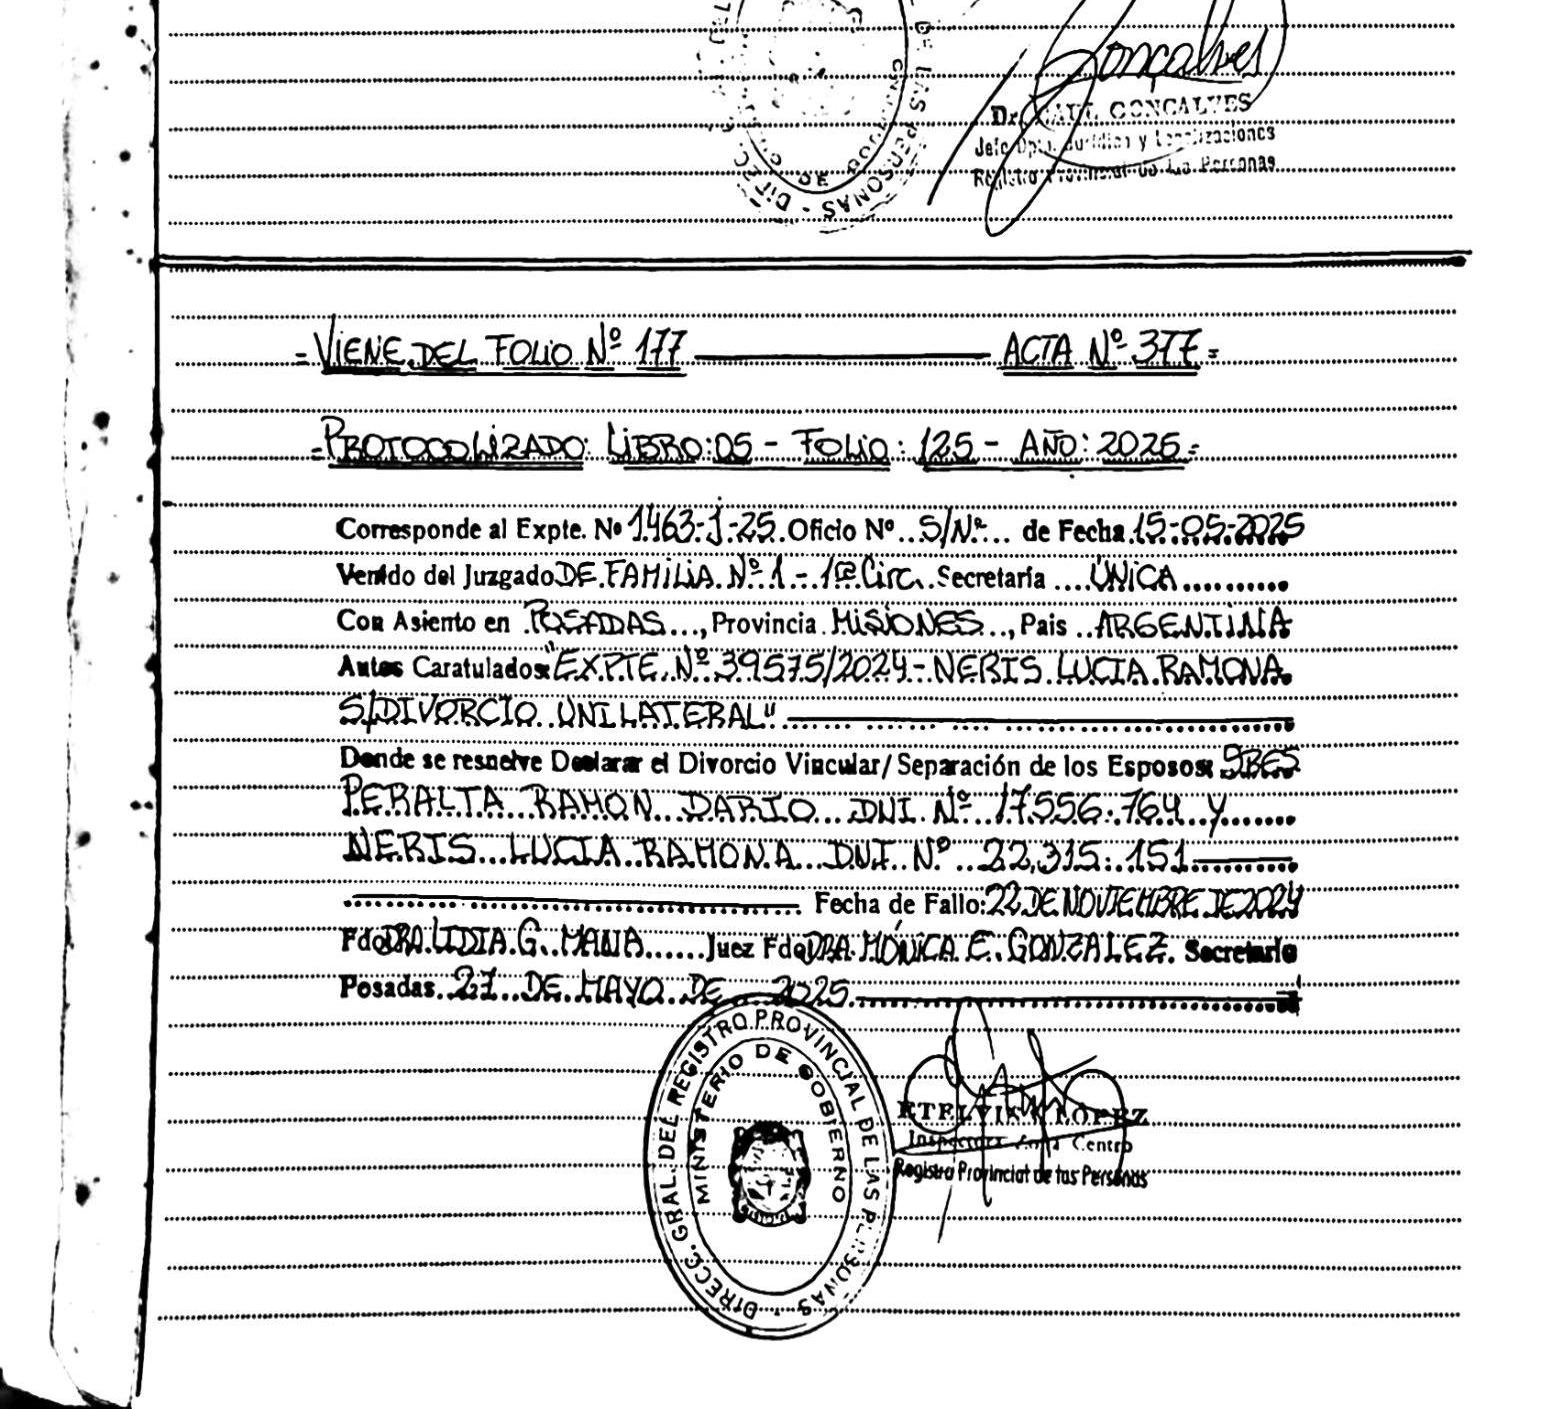 DE LAS PERSONAS
Gonçalves
Dr. RAUL GONCALVES
Jefe Dpto. Jurídico y Legalizaciones
Registro Provincial de las Personas
=VIENE DEL FOLIO Nº 177 ACTA Nº 377=
=PROTOCOLIZADO: LIBRO: 05 - FOLIO: 125 - AÑO: 2025=
Corresponde al Expte. Nº 1463-J-25. Oficio Nº..S/Nº... de Fecha.15-05-2025
Venido del Juzgado DE FAMILIA Nº 1 - 1ª Circ. Secretaría ....ÚNICA..........
Con Asiento en .POSADAS..., Provincia.MISIONES..., Pais ..ARGENTINA
Autos Caratulados: "EXPTE. Nº 39575/2024- NERIS LUCIA RAMONA
S/DIVORCIO UNILATERAL"
Donde se resuelve Declarar el Divorcio Vincular/ Separación de los Esposos: SRES
PERALTA RAMON DARIO DNI. Nº 17.556.764 Y
NERIS LUCIA RAMONA DNI Nº 22.315.151
Fecha de Fallo: 22 DE NOVIEMBRE DE 2024
Fdo DRA. LIDIA G. MANA......Juez Fdo DRA. MÓNICA E. GONZALEZ. Secretario
Posadas..27 DE MAYO DE 2025.
DIRECC. GRAL. DEL REGISTRO PROVINCIAL DE LAS PERSONAS
MINISTERIO DE GOBIERNO
ETELVINA LÓPEZ
Inspectora Zona Centro
Registro Provincial de las Personas